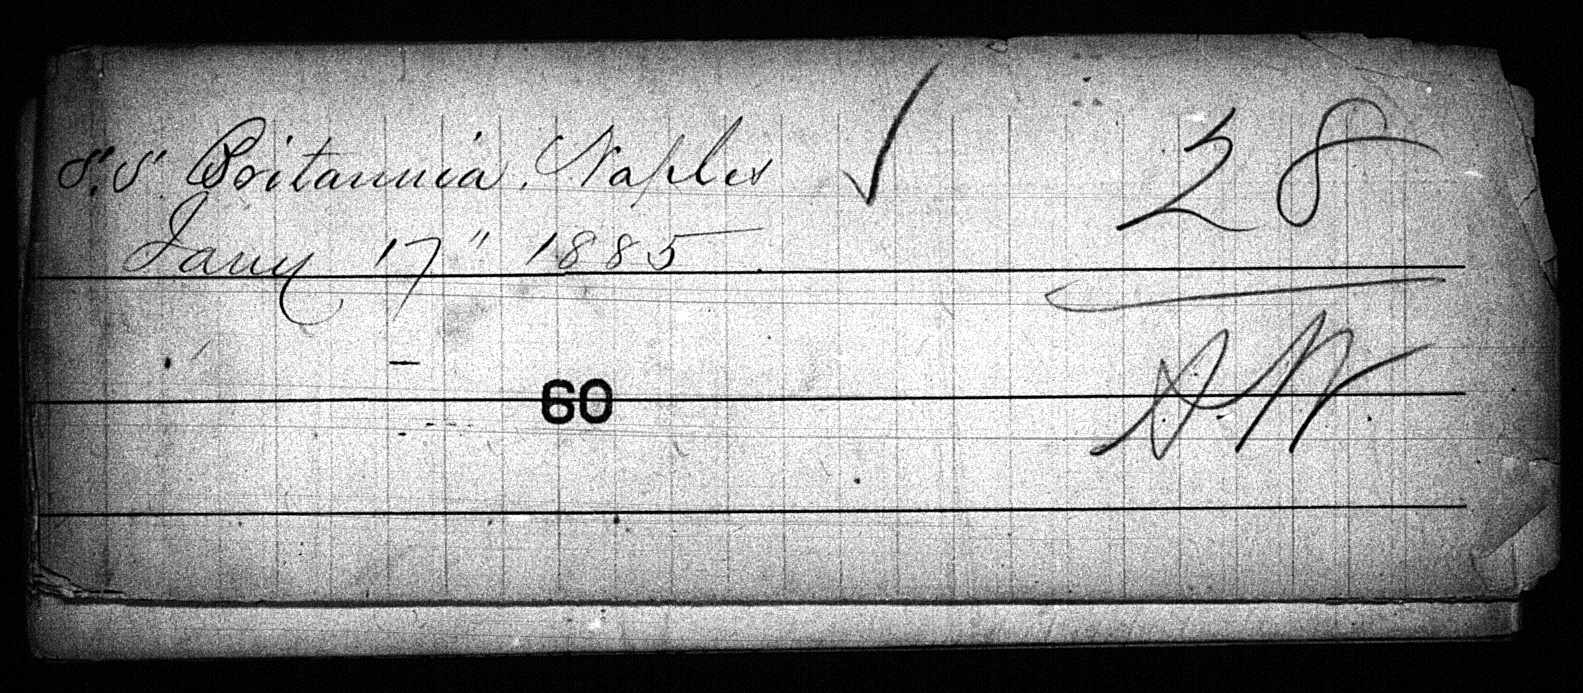 S.S Britannia. Naples ✓ 28
Jany 17" 1885
60